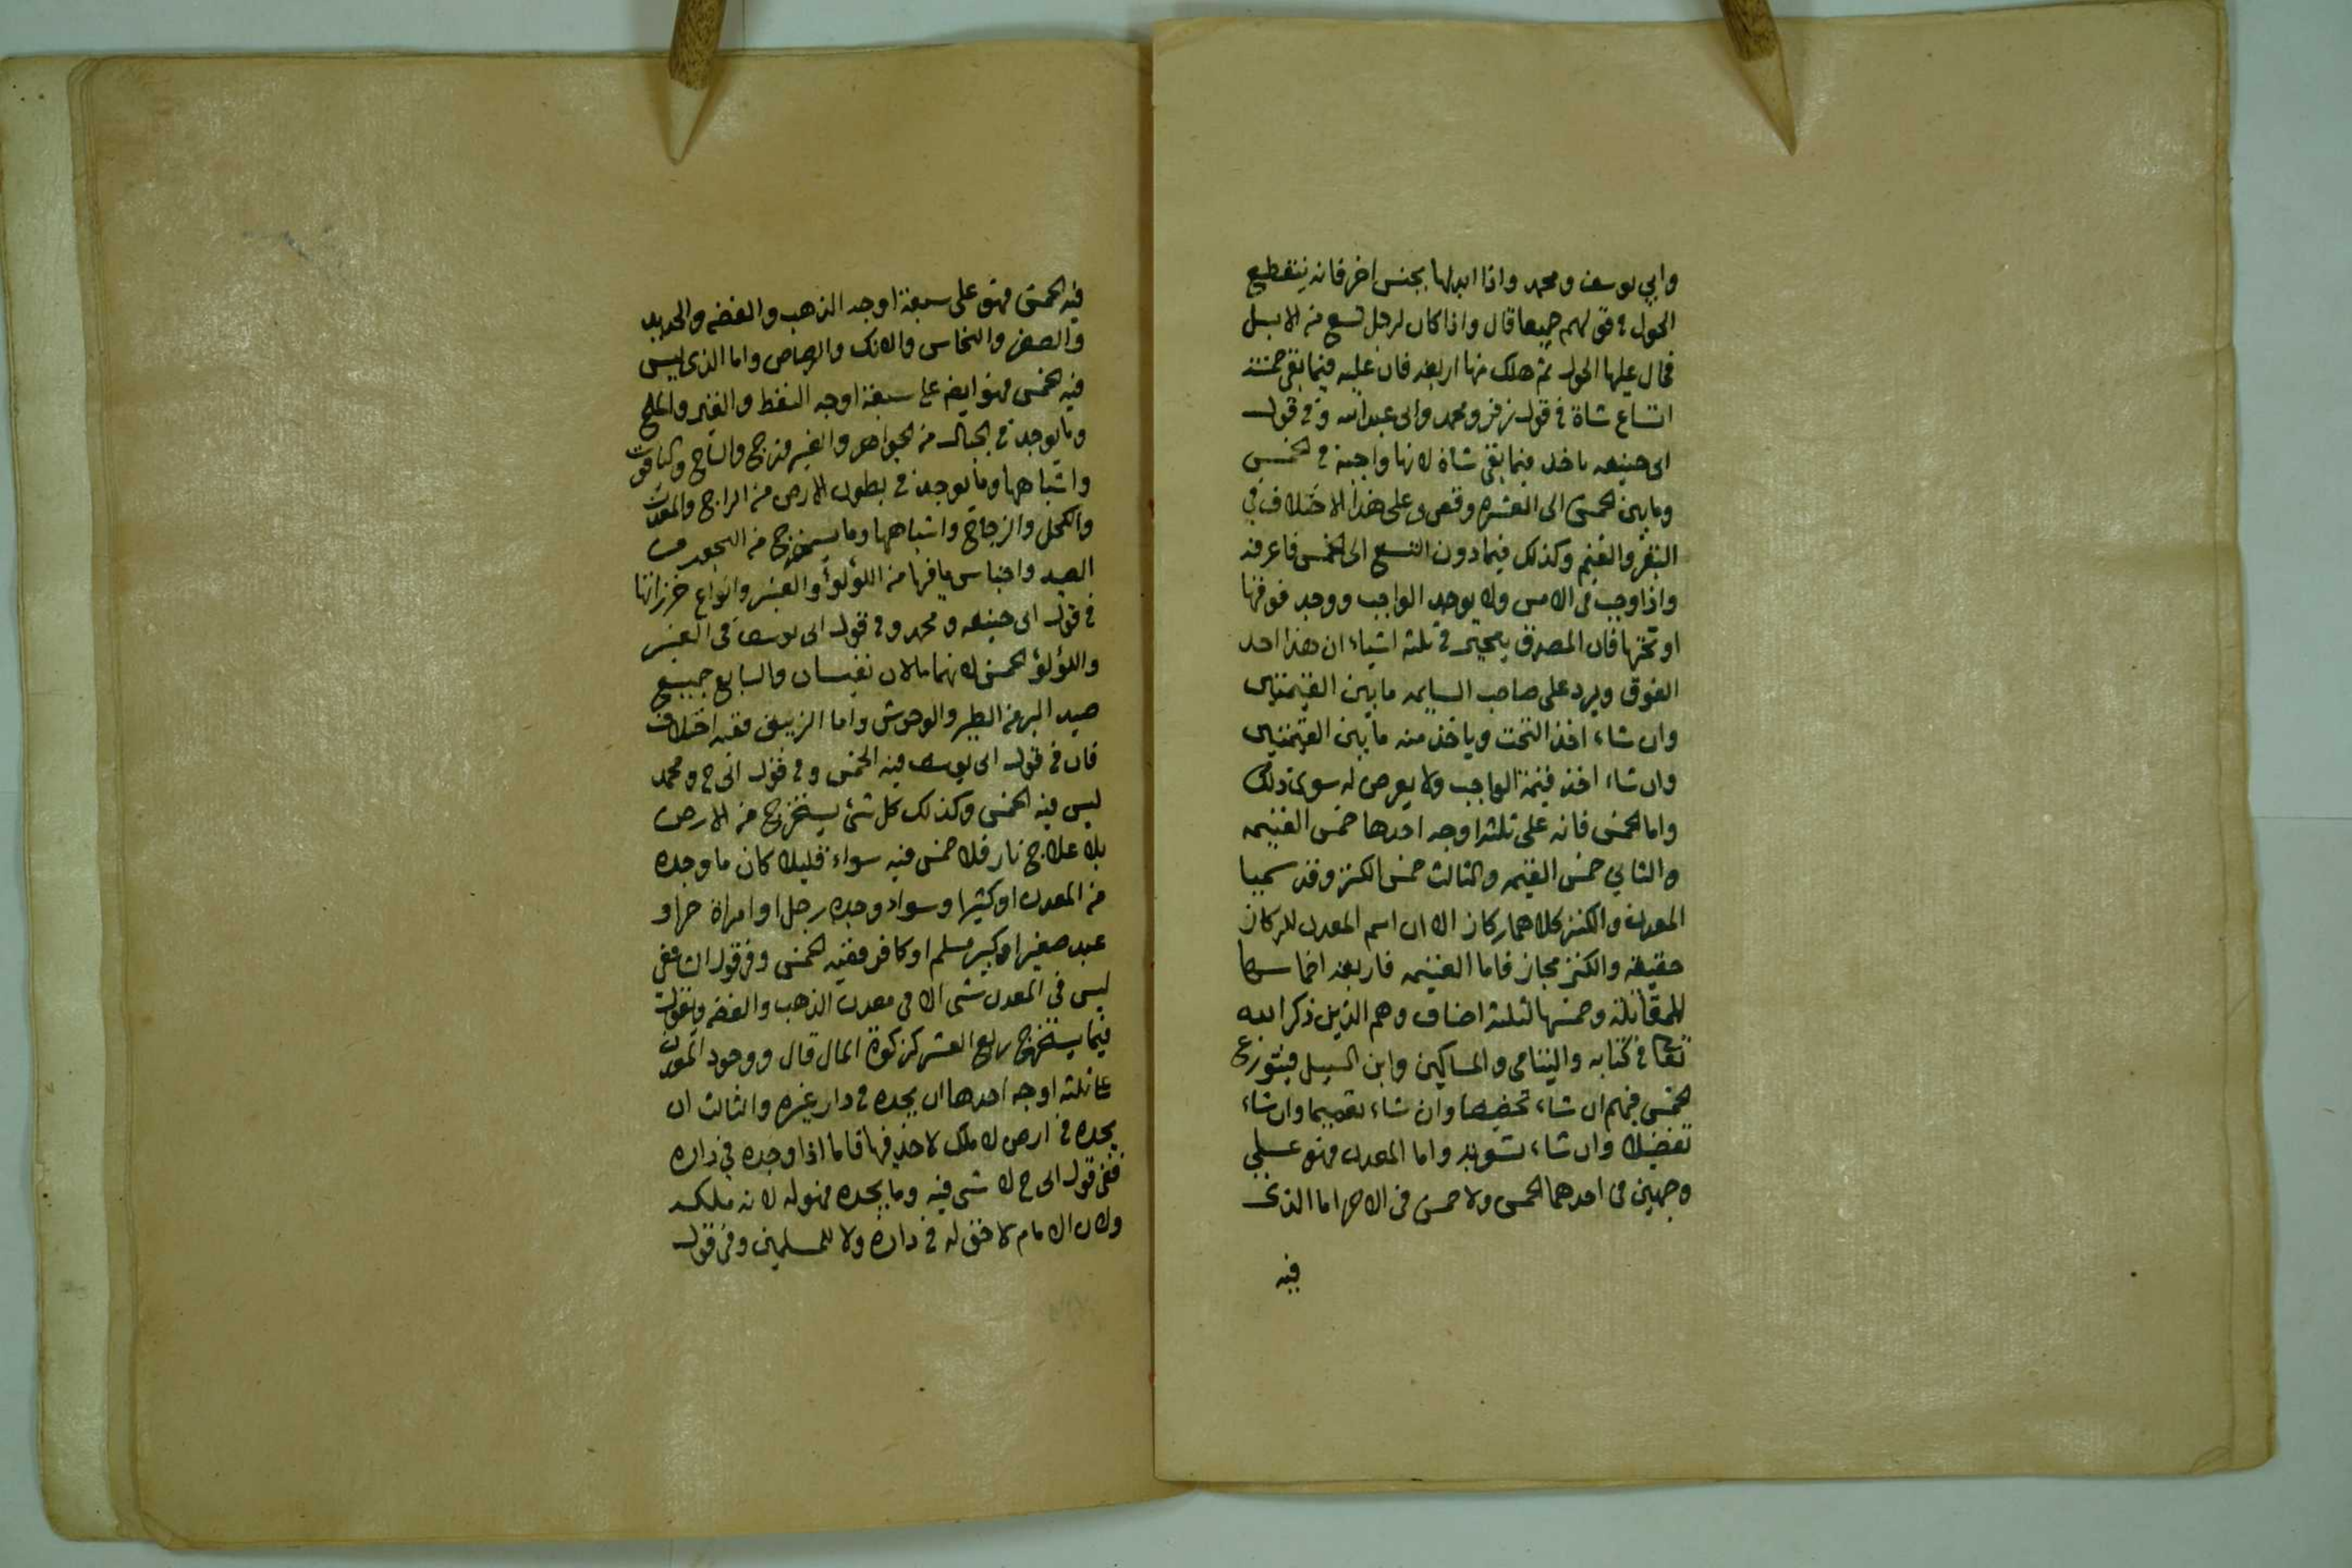 وابي يوسف ومحمد واذا ابدلها بجنس اخر فانه ينقطع
الحول في قولهم جميعا قال واذا كان لرجل تسع من الابل
فحال عليها الحول ثم هلك منها اربعة فان عليه فيما بقي خمسة
اتساع شاة في قول زفر ومحمد وابى عبدالله وفي قول
ابى حنيفه ياخذ فيما بقى شاة لانها واجبة في الخمس
وما بين الخمس الى العشره وقص وعلى هذا الاختلاف في
البقر والغنم وكذلك فيما دون التسع الى الخمس فاعرفه
واذا وجب في الامس ولا يوجد الواجب ووجد فوقها
او تحتها فان المصدق يخير في ثلثه اشياء ان هذا احد
الفوق ويرد على صاحب السايمه ما بين القيمتين
وان شاء اخذ التحت وياخذ منه ما بين القيمتين
وان شاء اخذ قيمة الواجب ولا يعرض له سوى ذلك
واما الخمس فانه على ثلثة اوجه احدها خمس الغنيمه
والثاني خمس الغنيمه والثالث خمس الكنز وقد سميا
المعدن والكنز كلاهما ركاز الا ان اسم المعدن للركاز
حقيقة والكنز مجاز فاما الغنيمه فاربعة اخماسها
للمقاتلة وخمسها لثلثة اصناف وهم الذين ذكر الله
تعا في كتابه واليتامى والمساكين وابن السبيل فيتوزع
الخمس فيهم ان شاء تخصيصا وان شاء تعميما وان شاء
تفضيلا وان شاء تسوية واما المعدن فهو على
وجهين في احدهما الخمس ولا خمس في الاخر اما الذى
فيه
فيه الخمس فهو على سبعة اوجه الذهب والفضه والحديد
والصفر والنحاس والانك والرصاص واما الذى ليس
فيه الخمس فهو ايضا على سبعة اوجه النفط والقير والملح
وما يوجد في الجبال من الجواهر والفيروزج والساج وكياقوت
واشباهها وما يوجد في بطون الارض من الزاج والمغرة
والكحل والزجاج واشباهها وما يستخرج من البحور من
الصيد واجناس ما فيها من اللؤلؤ والعنبر وانواع خرزاتها
في قول ابى حنيفه ومحمد وفي قول ابى يوسف في العنبر
واللؤلؤ الخمس لانهما مالان نفيسان والسابع جميع
صيد البر من الطير والوحوش واما الزيبق ففيه اختلاف
فان في قول ابى يوسف فيه الخمس وفي قول ابى ح ومحمد
ليس فيه الخمس وكذلك كل شئ يستخرج من الارض
بلا علاج نار فلا خمس فيه سواء قليلا كان ما وجده
من المعدن او كثيرا وسواء وجده رجل او امراة حر او
عبد صغير او كبير مسلم او كافر ففيه الخمس وفي قول الشافعى
ليس في المعدن شى الا في معدن الذهب والفضه ويقول
فيما يستخرج ربع العشر كزكوة المال قال ووجود المعدن
على ثلثه اوجه احدها ان يجده في دار غيره والثالث ان
يجده في ارض لا ملك لاحد فيها فاما اذا وجده في داره
ففى قول ابى ح لا شى فيه وما يجده فهو له لانه ملكه
ولان الامام لا حق له في داره ولا للمسلمين وفي قول